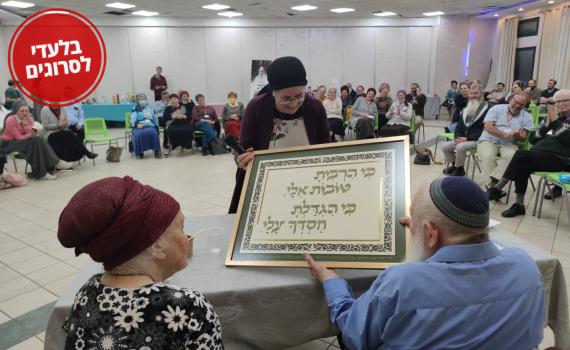 בלעדי
לסרוגים
כי הרבית
טובות אלי
כי הגדלת
חסדך עלי